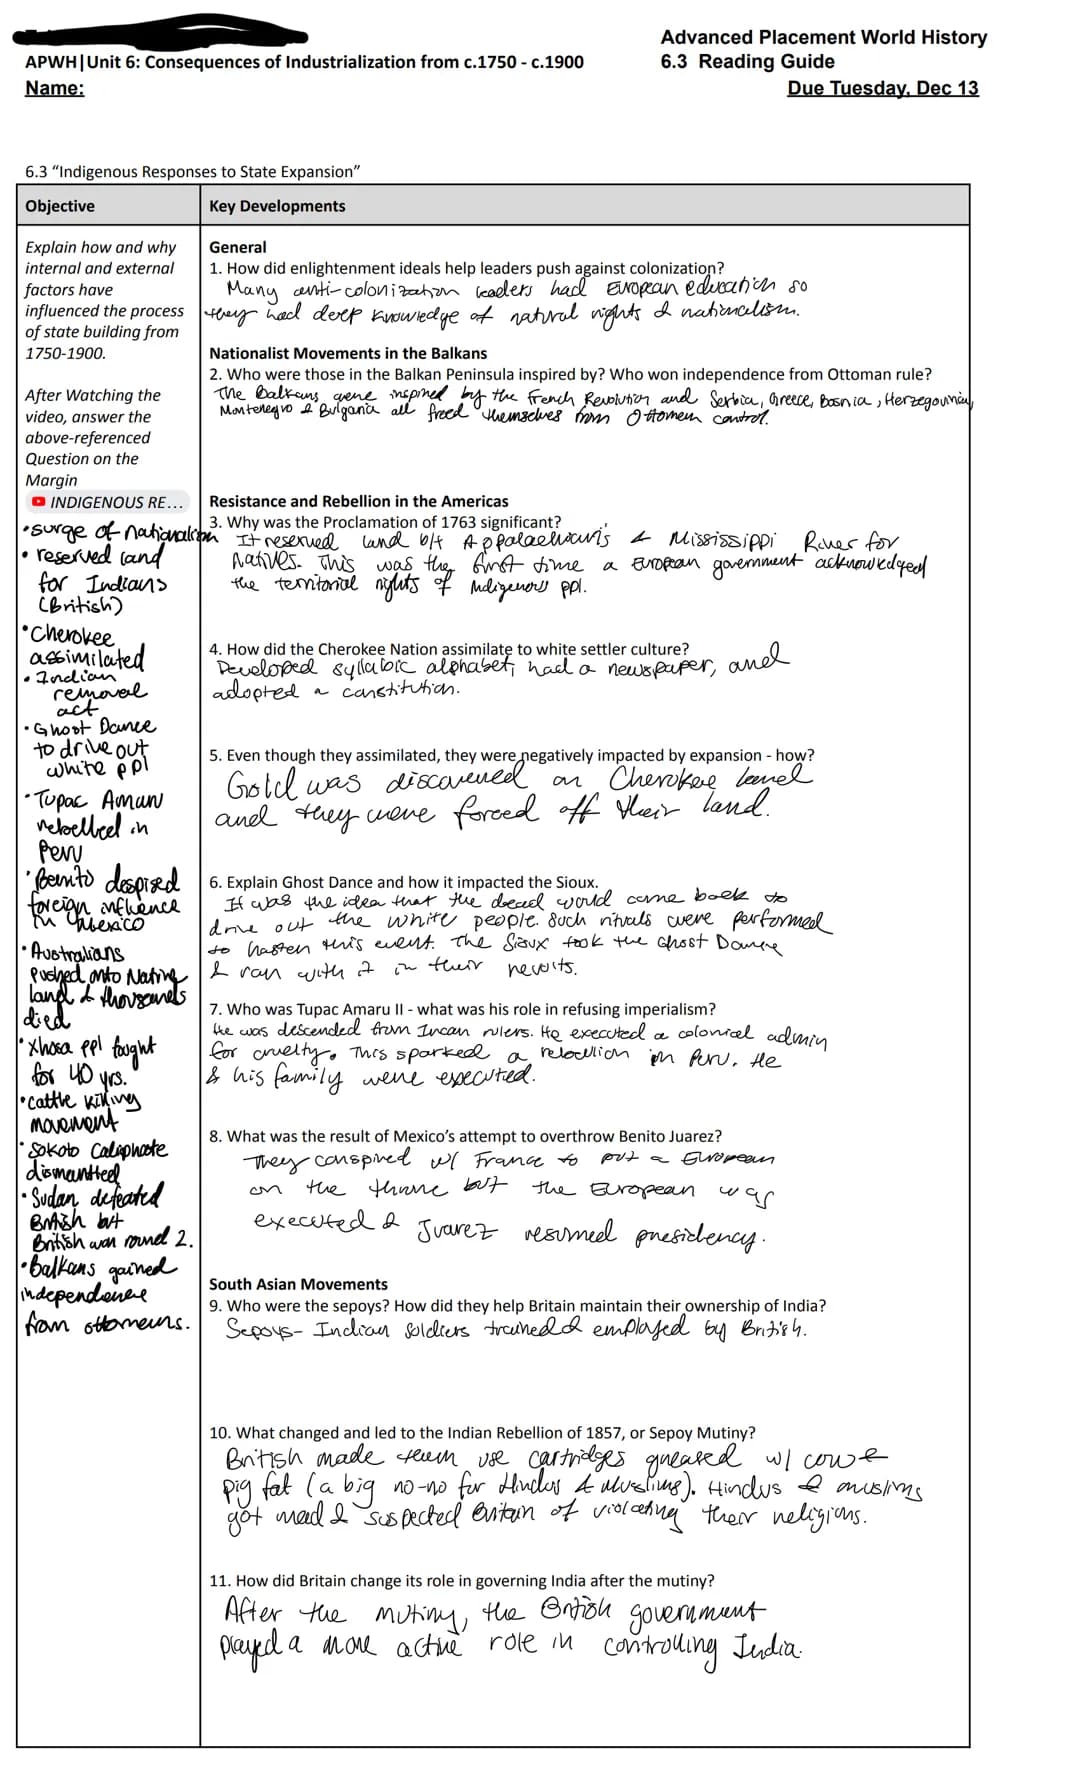 Advanced Placement World History
APWH|Unit 6: Consequences of Industrialization from c.1750 - c.1900
6.3 Reading Guide
Name:
Due Tuesday, Dec 13
6.3 “Indigenous Responses to State Expansion”
Objective
Key Developments
Explain how and why
internal and external
factors have
influenced the process
of state building from
1750-1900.
After Watching the
video, answer the
above-referenced
Question on the
Margin
INDIGENOUS RE...
•surge of nationalism
• reserved land
for Indians
(British)
•Cherokee
assimilated
•Indian
removal
act
•Ghost Dance
to drive out
white ppl
•Tupac Amaru
rebelled in
Peru
•Benito despised
foreign influence
in Mexico
•Australians
pushed onto Native
land & thousands
died
•Xhosa ppl fought
for 40 yrs.
•cattle killing
movement
•Sokoto Caliphate
dismantled
•Sudan defeated
British but
British won round 2.
•balkans gained
independence
from ottomans.
General
1. How did enlightenment ideals help leaders push against colonization?
Many anti-colonization leaders had European education so
they had deep knowledge of natural rights & nationalism.
Nationalist Movements in the Balkans
2. Who were those in the Balkan Peninsula inspired by? Who won independence from Ottoman rule?
The Balkans were inspired by the French Revolution and Serbia, Greece, Bosnia, Herzegovina,
Montenegro & Bulgaria all freed themselves from Ottoman control.
Resistance and Rebellion in the Americas
3. Why was the Proclamation of 1763 significant?
It reserved land b/t Appalachians & Mississippi River for
natives. This was the first time a European government acknowledged
the territorial rights of Indigenous ppl.
4. How did the Cherokee Nation assimilate to white settler culture?
Developed syllabic alphabet, had a newspaper, and
adopted a constitution.
5. Even though they assimilated, they were negatively impacted by expansion - how?
Gold was discovered on Cherokee land
and they were forced off their land.
6. Explain Ghost Dance and how it impacted the Sioux.
It was the idea that the dead would come back to
drive out the white people. Such rituals were performed
to hasten this event. The Sioux took the Ghost Dance
& ran with it in their revolts.
7. Who was Tupac Amaru II - what was his role in refusing imperialism?
He was descended from Incan rulers. He executed a colonial admin
for cruelty. This sparked a rebellion in Peru. He
& his family were executed.
8. What was the result of Mexico’s attempt to overthrow Benito Juarez?
They conspired w/ France to put a European
on the throne but the European was
executed & Juarez resumed presidency.
South Asian Movements
9. Who were the sepoys? How did they help Britain maintain their ownership of India?
Sepoys- Indian soldiers trained & employed by British.
10. What changed and led to the Indian Rebellion of 1857, or Sepoy Mutiny?
British made them use cartridges greased w/ cow &
pig fat (a big no-no for Hindus & Muslims). Hindus & muslims
got mad & suspected Britain of violating their religions.
11. How did Britain change its role in governing India after the mutiny?
After the mutiny, the British government
played a more active role in controlling India.